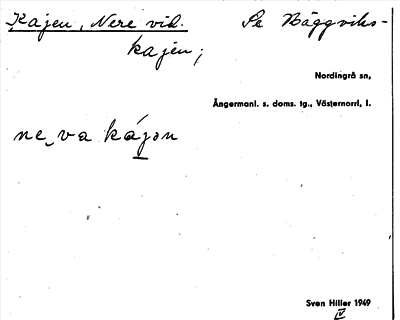 Kajen, Nere vid. Se Häggviks-
kajen;
Nordingrå sn,
Ångermanl. s. doms. tg., Västernorrl. l.
ne‿va kájən
Sven Hiller 1949
IV